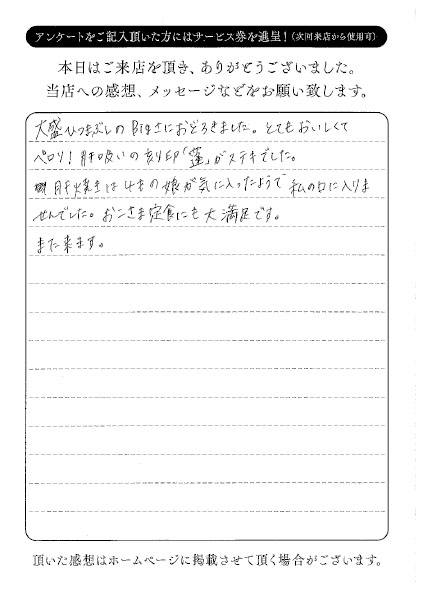 アンケートをご記入頂いた方にはサービス券を進呈!(次回来店から使用可)
本日はご来店を頂き、ありがとうございました。
当店への感想、メッセージなどをお願い致します。
大盛ひつまぶしのBigさにおどろきました。とてもおいしくて
ペロリ!肝吸いの刻印「蓬」がステキでした。
肝焼きは4才の娘が気に入ったようで私の口に入りま
せんでした。おこさま定食にも大満足です。
また来ます。
頂いた感想はホームページに掲載させて頂く場合がございます。